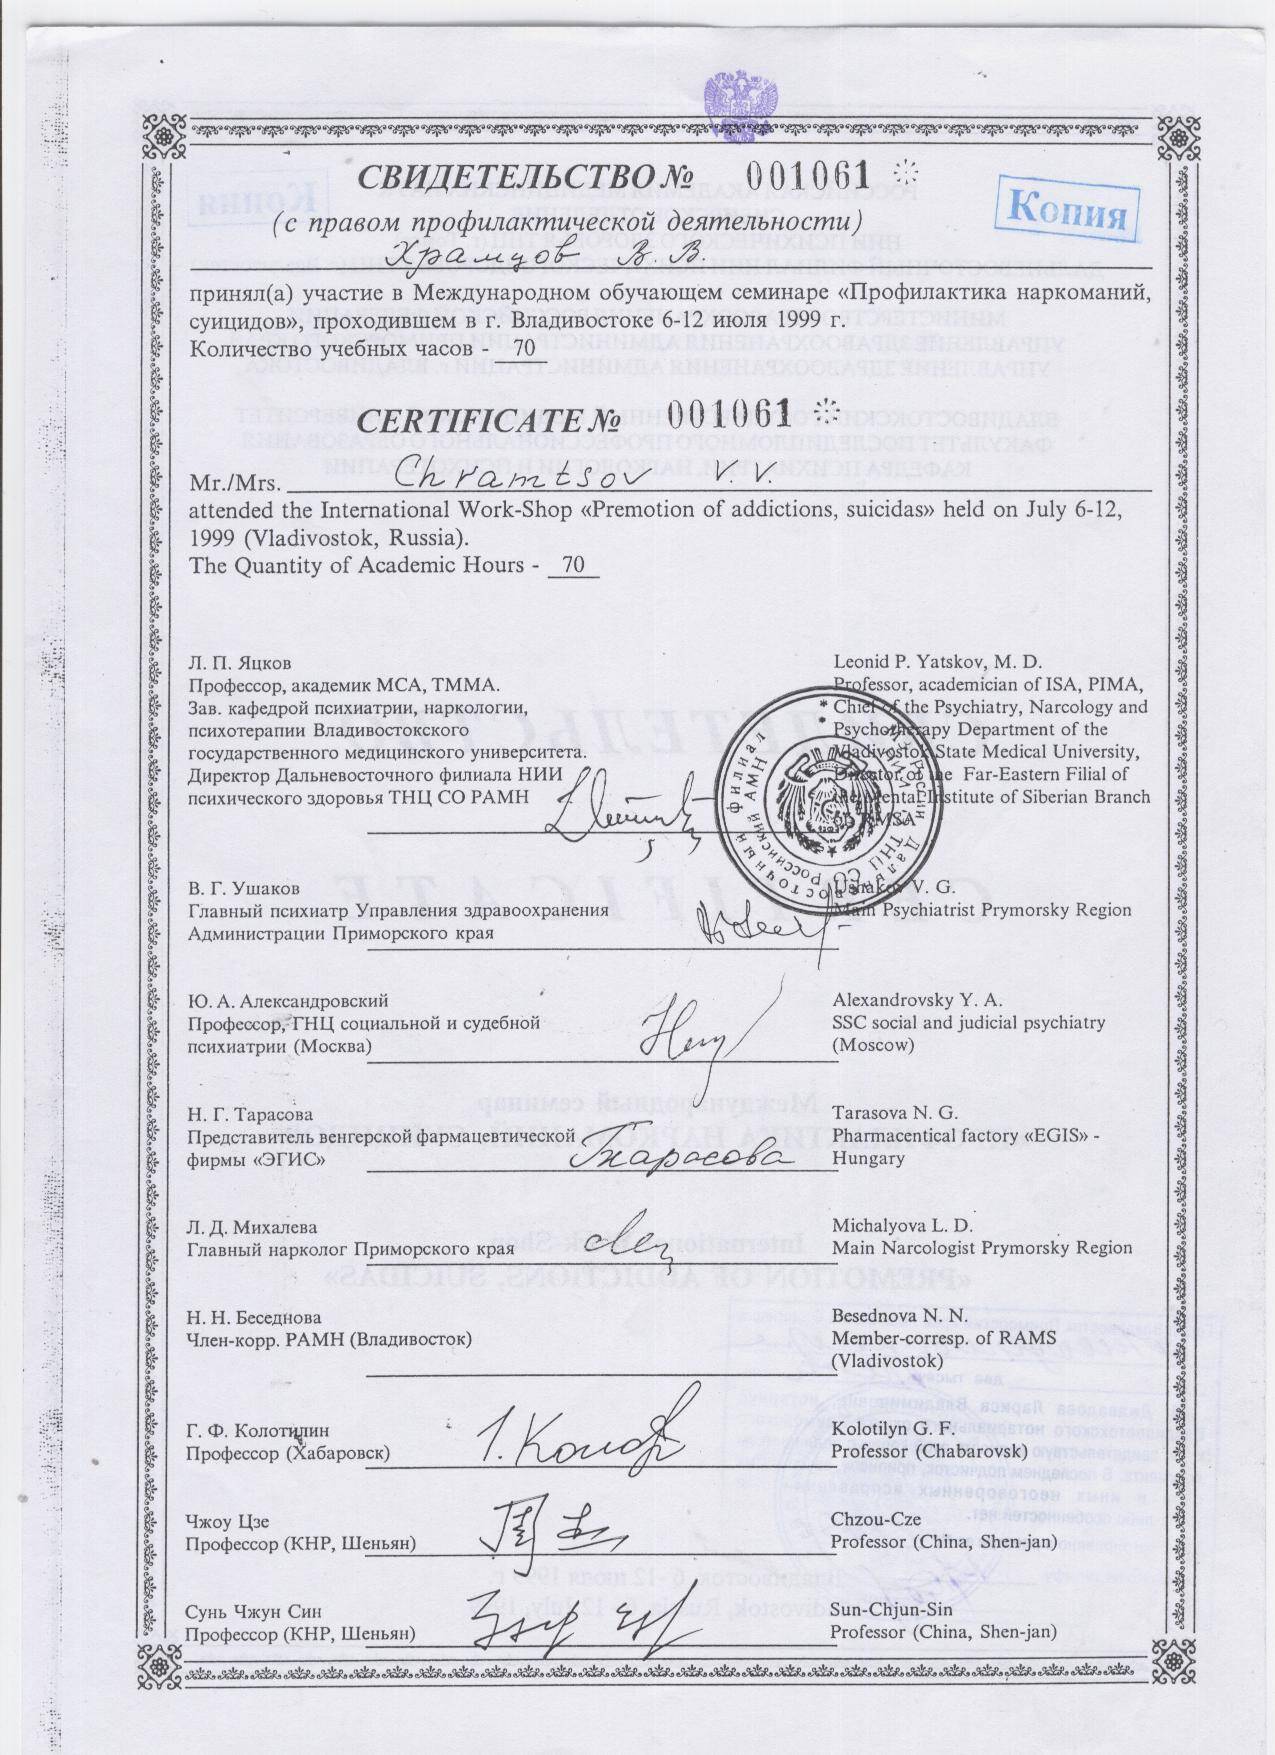 СВИДЕТЕЛЬСТВО № 001061
Копия
(с правом профилактической деятельности)
Храмцов В. В.
принял(а) участие в Международном обучающем семинаре «Профилактика наркоманий,
суицидов», проходившем в г. Владивостоке 6-12 июля 1999 г.
Количество учебных часов - 70
CERTIFICATE № 001061
Mr./Mrs. Chramtsov V. V.
attended the International Work-Shop «Premotion of addictions, suicidas» held on July 6-12,
1999 (Vladivostok, Russia).
The Quantity of Academic Hours - 70
Л. П. Яцков
Профессор, академик МСА, ТММА.
Зав. кафедрой психиатрии, наркологии,
психотерапии Владивостокского
государственного медицинского университета.
Директор Дальневосточного филиала НИИ
психического здоровья ТНЦ СО РАМН
Leonid P. Yatskov, M. D.
Professor, academician of ISA, PIMA,
Chief of the Psychiatry, Narcology and
Psychotherapy Department of the
Vladivostok State Medical University,
Director of the Far-Eastern Filial of
the Mental Institute of Siberian Branch
of RMSA
В. Г. Ушаков
Главный психиатр Управления здравоохранения
Администрации Приморского края
Ushakov V. G.
Main Psychiatrist Prymorsky Region
Ю. А. Александровский
Профессор, ГНЦ социальной и судебной
психиатрии (Москва)
Alexandrovsky Y. A.
SSC social and judicial psychiatry
(Moscow)
Н. Г. Тарасова
Представитель венгерской фармацевтической
фирмы «ЭГИС»
Тарасова
Tarasova N. G.
Pharmacentical factory «EGIS» -
Hungary
Л. Д. Михалева
Главный нарколог Приморского края
Michalyova L. D.
Main Narcologist Prymorsky Region
Н. Н. Беседнова
Член-корр. РАМН (Владивосток)
Besednova N. N.
Member-corresp. of RAMS
(Vladivostok)
Г. Ф. Колотилин
Профессор (Хабаровск)
Kolotilyn G. F.
Professor (Chabarovsk)
Чжоу Цзе
Профессор (КНР, Шеньян)
Chzou-Cze
Professor (China, Shen-jan)
Сунь Чжун Син
Профессор (КНР, Шеньян)
Sun-Chjun-Sin
Professor (China, Shen-jan)